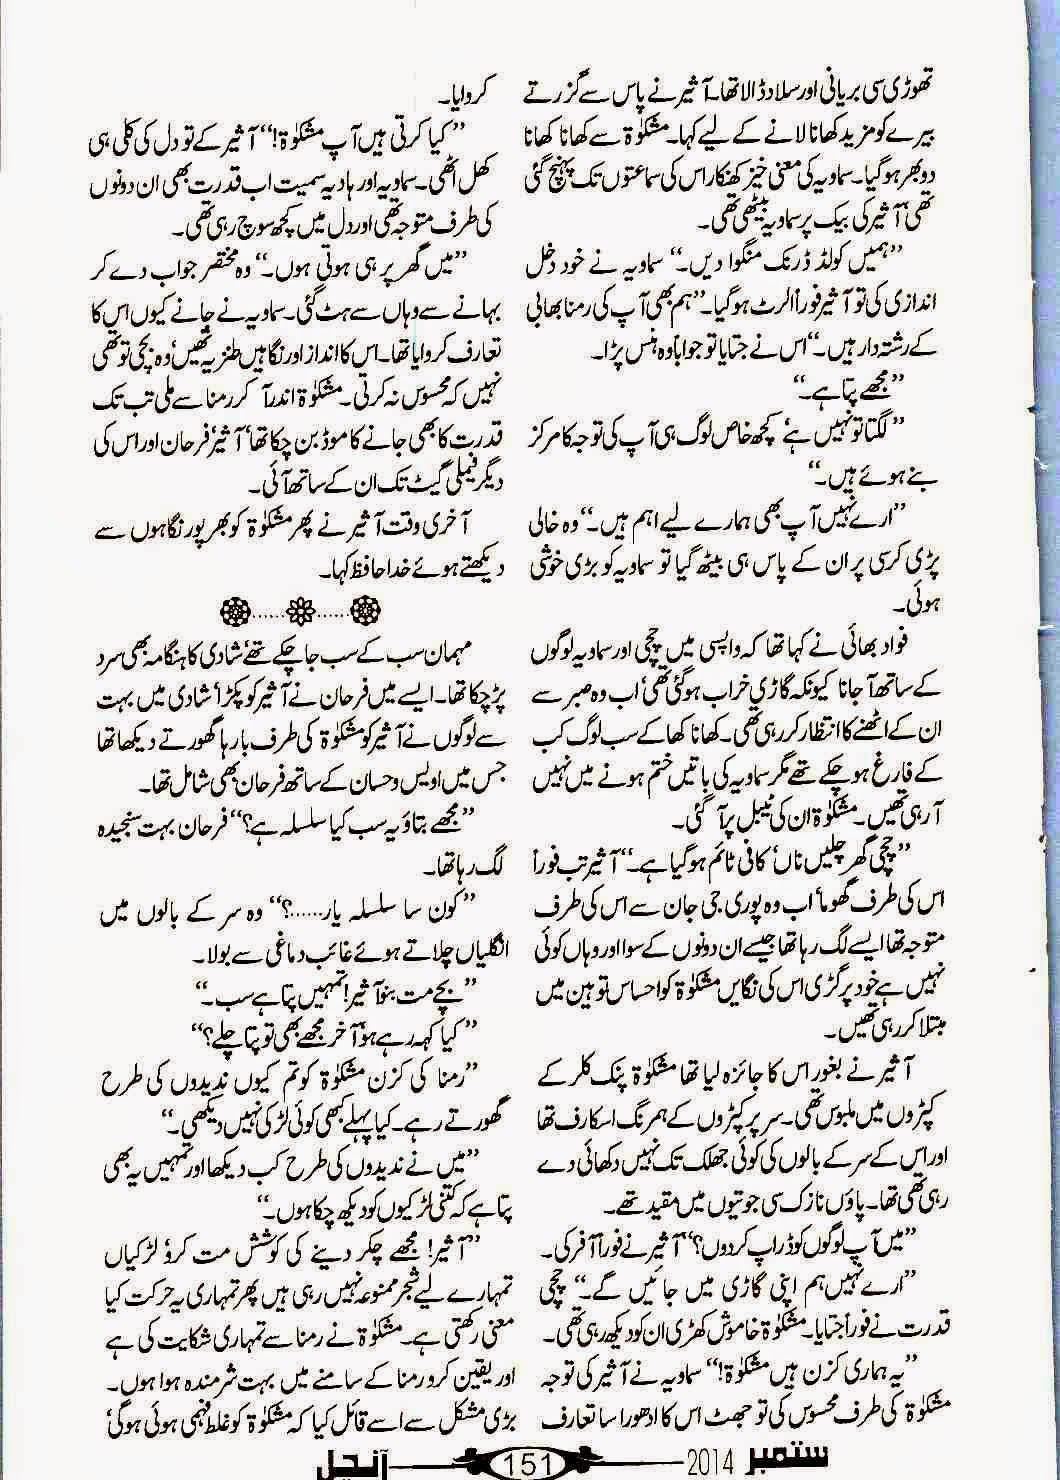 تھوڑی سی بریانی اور سلاد ڈالا تھا۔ آثیر نے پاس سے گزرتے
بیرے کو مزید کھانا لانے کے لیے کہا۔ مشکوٰۃ سے کھانا کھانا
دوبھر ہو گیا۔ سماویہ کی معنی خیز کھنکار اس کی سماعتوں تک پہنچ گئی
تھی آثیر کی بیک پر سماویہ بیٹھی تھی۔
”ہمیں کولڈ ڈرنک منگوا دیں۔“ سماویہ نے خود دخل
اندازی کی تو آثیر فوراً الرٹ ہو گیا۔ ”ہم بھی آپ کی رمنا بھابی
کے رشتہ دار ہیں۔“ اس نے جتایا تو جواباً وہ ہنس پڑا۔
”مجھے پتا ہے۔“
”لگتا تو نہیں ہے‘ کچھ خاص لوگ ہی آپ کی توجہ کا مرکز
بنے ہوئے ہیں۔“
”ارے نہیں آپ بھی ہمارے لیے اہم ہیں۔“ وہ خالی
پڑی کرسی پر ان کے پاس ہی بیٹھ گیا تو سماویہ کو بڑی خوشی
ہوئی۔
فواد بھائی نے کہا تھا کہ واپسی میں چچی اور سماویہ لوگوں
کے ساتھ آ جانا کیونکہ گاڑی خراب ہو گئی تھی‘ اب وہ صبر سے
ان کے اٹھنے کا انتظار کر رہی تھی۔ کھانا کھا کے سب لوگ کب
کے فارغ ہو چکے تھے مگر سماویہ کی باتیں ختم ہونے میں نہیں
آ رہی تھیں۔ مشکوٰۃ ان کی ٹیبل پر آ گئی۔
”چچی گھر چلیں ناں‘ کافی ٹائم ہو گیا ہے۔“ آثیر تب فوراً
اس کی طرف گھوما‘ اب وہ پوری جی جان سے اس کی طرف
متوجہ تھا ایسے لگ رہا تھا جیسے ان دونوں کے سوا اور وہاں کوئی
نہیں ہے خود پر گڑی اس کی نگاہیں مشکوٰۃ کو احساس توہین میں
مبتلا کر رہی تھیں۔
آثیر نے بغور اس کا جائزہ لیا تھا مشکوٰۃ پنک کلر کے
کپڑوں میں ملبوس تھی۔ سر پر کپڑوں کے ہمرنگ اسکارف تھا
اور اس کے سر کے بالوں کی کوئی جھلک تک نہیں دکھائی دے
رہی تھی تھا۔ پاؤں نازک سی جوتیوں میں مقید تھے۔
”میں آپ لوگوں کو ڈراپ کر دوں؟“ آثیر نے فوراً آفر کی۔
”ارے نہیں ہم اپنی گاڑی میں جائیں گے۔“ چچی
قدرت نے فوراً جتایا۔ مشکوٰۃ خاموش کھڑی ان کو دیکھ رہی تھی۔
”یہ ہماری کزن ہیں مشکوٰۃ!“ سماویہ نے آثیر کی توجہ
مشکوٰۃ کی طرف محسوس کی تو جھٹ اس کا ادھورا سا تعارف
کروایا۔
”کیا کرتی ہیں آپ مشکوٰۃ!“ آثیر کے تو دل کی کلی ہی
کھل اٹھی۔ سماویہ اور ہادیہ سمیت اب قدرت بھی ان دونوں
کی طرف متوجہ تھی اور دل میں کچھ سوچ رہی تھی۔
”میں گھر پر ہی ہوتی ہوں۔“ وہ مختصر جواب دے کر
بہانے سے وہاں سے ہٹ گئی۔ سماویہ نے جانے کیوں اس کا
تعارف کروایا تھا۔ اس کا انداز اور نگاہیں طنزیہ تھیں‘ وہ بچی تو تھی
نہیں کہ محسوس نہ کرتی۔ مشکوٰۃ اندر آ کر رمنا سے ملی تب تک
قدرت کا بھی جانے کا موڈ بن چکا تھا‘ آثیر‘ فرحان اور اس کی
دیگر فیملی گیٹ تک ان کے ساتھ آئی۔
آخری وقت آثیر نے پھر مشکوٰۃ کو بھرپور نگاہوں سے
دیکھتے ہوئے خدا حافظ کہا۔
مہمان سب کے سب جا چکے تھے‘ شادی کا ہنگامہ بھی سرد
پڑ چکا تھا۔ ایسے میں فرحان نے آثیر کو پکڑا‘ شادی میں بہت
سے لوگوں نے آثیر کو مشکوٰۃ کی طرف بارہا گھورتے دیکھا تھا
جس میں اویس و حسان کے ساتھ فرحان بھی شامل تھا۔
”مجھے بتاؤ یہ سب کیا سلسلہ ہے؟“ فرحان بہت سنجیدہ
لگ رہا تھا۔
”کون سا سلسلہ یار......؟“ وہ سر کے بالوں میں
انگلیاں چلاتے ہوئے غائب دماغی سے بولا۔
”بچے مت بنو آثیر! تمہیں پتا ہے سب۔“
”کیا کہہ رہے ہو‘ آخر مجھے بھی تو پتا چلے؟“
”رمنا کی کزن مشکوٰۃ کو تم کیوں ندیدوں کی طرح
گھورتے رہے۔ کیا پہلے کبھی کوئی لڑکی نہیں دیکھی۔“
”میں نے ندیدوں کی طرح کب دیکھا اور تمہیں یہ بھی
پتا ہے کہ کتنی لڑکیوں کو دیکھ چکا ہوں۔“
”آثیر! مجھے چکر دینے کی کوشش مت کرو‘ لڑکیاں
تمہارے لیے شجر ممنوعہ نہیں رہی ہیں پھر تمہاری یہ حرکت کیا
معنی رکھتی ہے۔ مشکوٰۃ نے رمنا سے تمہاری شکایت کی ہے
اور یقین کرو رمنا کے سامنے میں بہت شرمندہ ہوا ہوں۔
بڑی مشکل سے اسے قائل کیا کہ مشکوٰۃ کو غلط فہمی ہوئی ہو گی‘
ستمبر 2014
151
آنچل